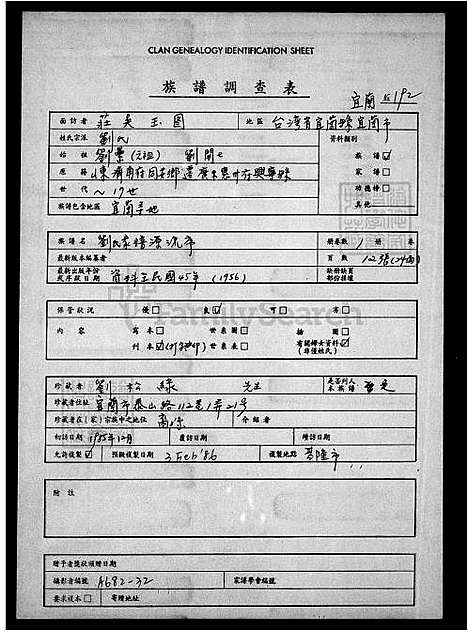 CLAN GENEALOGY IDENTIFICATION SHEET
族譜調查表
宜蘭 192
面訪者 莊吳玉圖 地區 台灣省宜蘭縣宜蘭市
姓氏宗派 劉氏 資料類別
始祖 劉榮(元祖) 劉開七 族譜☑
原籍 山東濟南府同安鄉遷廣東惠州府興寧縣 家譜□
世代 ~17世 功德榜□
族譜包含地區 宜蘭等地 其他
族譜名 劉氏家譜源流考 冊卷數 1 冊 卷
最新版本編纂者 頁數 122張(24面)
最新出版年份或序跋日期 資料至民國45年 (1956) 缺縫缺頁部份往壞
保管狀況 優□ 良☑ 可□ 劣□
內容 寫本□ 世系圖□ 插圖□
刊本☑ 世系表□ 有關婦女資料☑(非僅姓氏)
FamilySearch
珍藏者 劉松綠 先生 是否列入本族譜 是
珍藏者住址 宜蘭市泰山路112巷1弄21号
珍藏者在(家)宗族中之地位 裔孫 介紹者
初訪日期 1985年12月 覆訪日期 贈訪日期
允許複製☑ 預擬複製日期 3 Feb '86 複製地點 基隆市
附註
贈予者獎狀頒贈日期
攝影者編號 A682-32 家譜學會編號
要求複本□ 寄贈地址